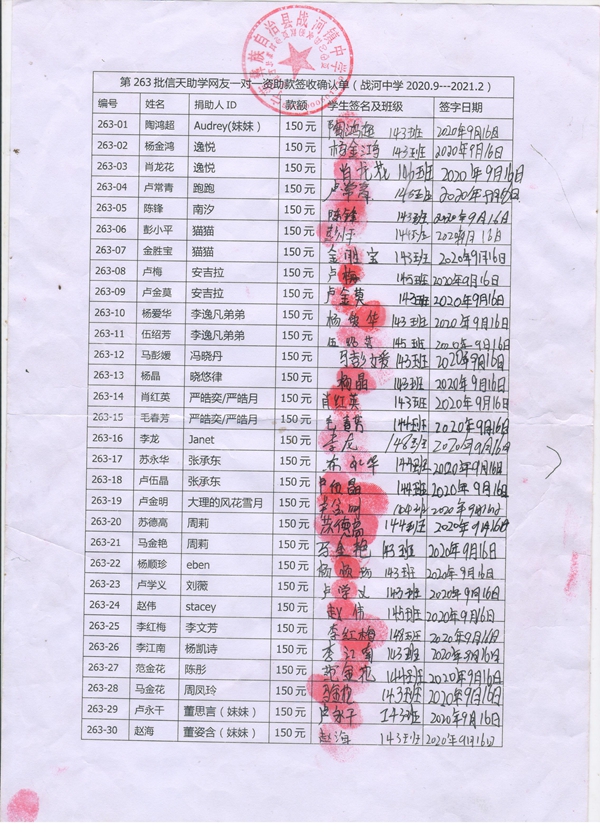 族自治县战河镇中学
第 263 批信天助学网友一对一资助款签收确认单（战河中学 2020.9---2021.2）
编号 姓名 捐助人 ID 款额 学生签名及班级 签字日期
263-01 陶鸿超 Audrey(妹妹） 150 元 陶鸿超 143班 2020年9月16日
263-02 杨金鸿 逸悦 150 元 杨金鸿 143班 2020年9月16日
263-03 肖龙花 逸悦 150 元 肖龙花 146班 2020年9月16日
263-04 卢常青 跑跑 150 元 2020年9月16日
263-05 陈锋 南汐 150 元 陈锋 143班 2020年9月16日
263-06 彭小平 猫猫 150 元 144班 2020年9月16日
263-07 金胜宝 猫猫 150 元 金胜宝 143班 2020年9月16日
263-08 卢梅 安吉拉 150 元 卢梅 145班 2020年9月16日
263-09 卢金莫 安吉拉 150 元 卢金莫 143班 2020年9月16日
263-10 杨爱华 李逸凡弟弟 150 元 杨爱华 143班 2020年9月16日
263-11 伍绍芳 李逸凡弟弟 150 元 伍绍芳 145班 2020年9月16日
263-12 马彭媛 冯晓丹 150 元 马彭媛 143班 2020年9月16日
263-13 杨晶 晓悠律 150 元 杨晶 143班 2020年9月16日
263-14 肖红英 严皓奕/严皓月 150 元 肖红英 143班 2020年9月16日
263-15 毛春芳 严皓奕/严皓月 150 元 毛春芳 144班 2020年9月16日
263-16 李龙 Janet 150 元 李龙 146班 2020年9月16日
263-17 苏永华 张承东 150 元 苏永华 144班 2020年9月16日
263-18 卢伍晶 张承东 150 元 卢伍晶 144班 2020年9月16日
263-19 卢金明 大理的风花雪月 150 元 卢金明 144班 2020年9月16日
263-20 苏德高 周莉 150 元 苏德高 144班 2020年9月16日
263-21 马金艳 周莉 150 元 马金艳 143班 2020年9月16日
263-22 杨顺珍 eben 150 元 杨顺珍 143班 2020年9月16日
263-23 卢学义 刘薇 150 元 卢学义 143班 2020年9月16日
263-24 赵伟 stacey 150 元 赵伟 145班 2020年9月16日
263-25 李红梅 李文芳 150 元 李红梅 148班 2020年9月16日
263-26 李江南 杨凯诗 150 元 李江南 143班 2020年9月16日
263-27 范金花 陈彤 150 元 范金花 144班 2020年9月16日
263-28 马金花 周凤玲 150 元 马金花 143班 2020年9月16日
263-29 卢永干 董思言（妹妹） 150 元 卢永干 143班 2020年9月16日
263-30 赵海 董姿含（妹妹） 150 元 赵海 143班 2020年9月16日